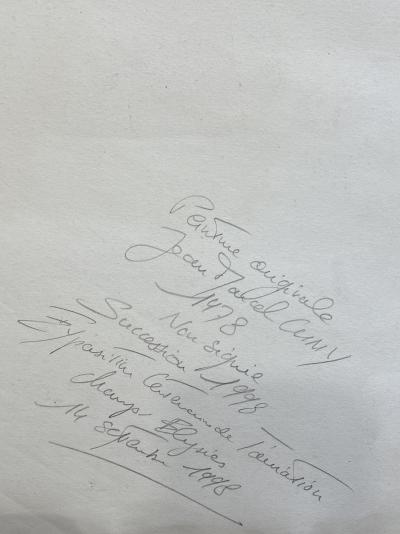 Peinture originale
Jean Marcel CUNY
1978
Non signée
Succession 1998
Exposition de Donation
Champs Elysées
14 septembre 1998